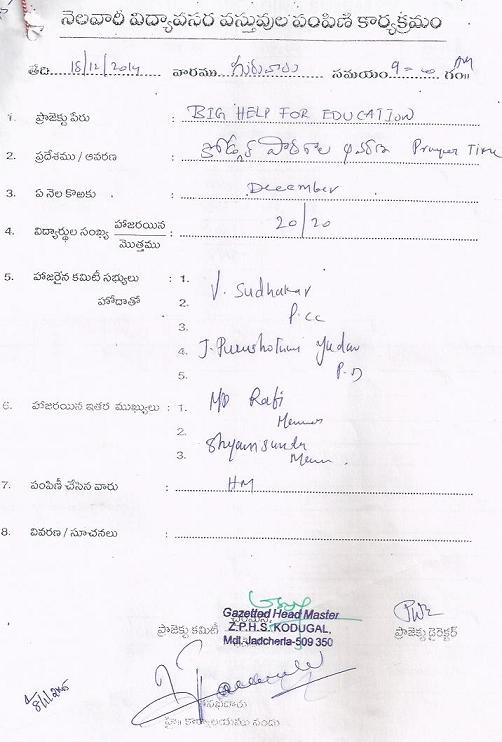 నెలవారీ విద్యావసర వస్తువుల పంపిణి కార్యక్రమం
తేది 18/12/2014 వారము గురువారం సమయం 9-00 గం॥ AM
1. ప్రాజెక్టు పేరు : BIG HELP FOR EDUCATION
2. ప్రదేశము / ఆవరణ : పాఠశాల ఆవరణ Prayer Time
3. ఏ నెల కొఱకు : December
4. విద్యార్థుల సంఖ్య హాజరయిన / మొత్తము : 20/20
5. హాజరైన కమిటీ సభ్యులు : 1. V. Sudhakar
హోదాతో 2. P.CC
3.
4. J. Purushotam Yadav
5. P.D
6. హాజరయిన ఇతర ముఖ్యులు : 1. MD Rafi
2.
3. Shyamsundr
7. పంపిణీ చేసిన వారు : HM
8. వివరణ / సూచనలు :
Gazetted Head Master
ప్రాజెక్టు కమిటీ Z.P.H.S. KODUGAL, ప్రాజెక్టు డైరెక్టర్
Mdl. Jadcherla-509 350